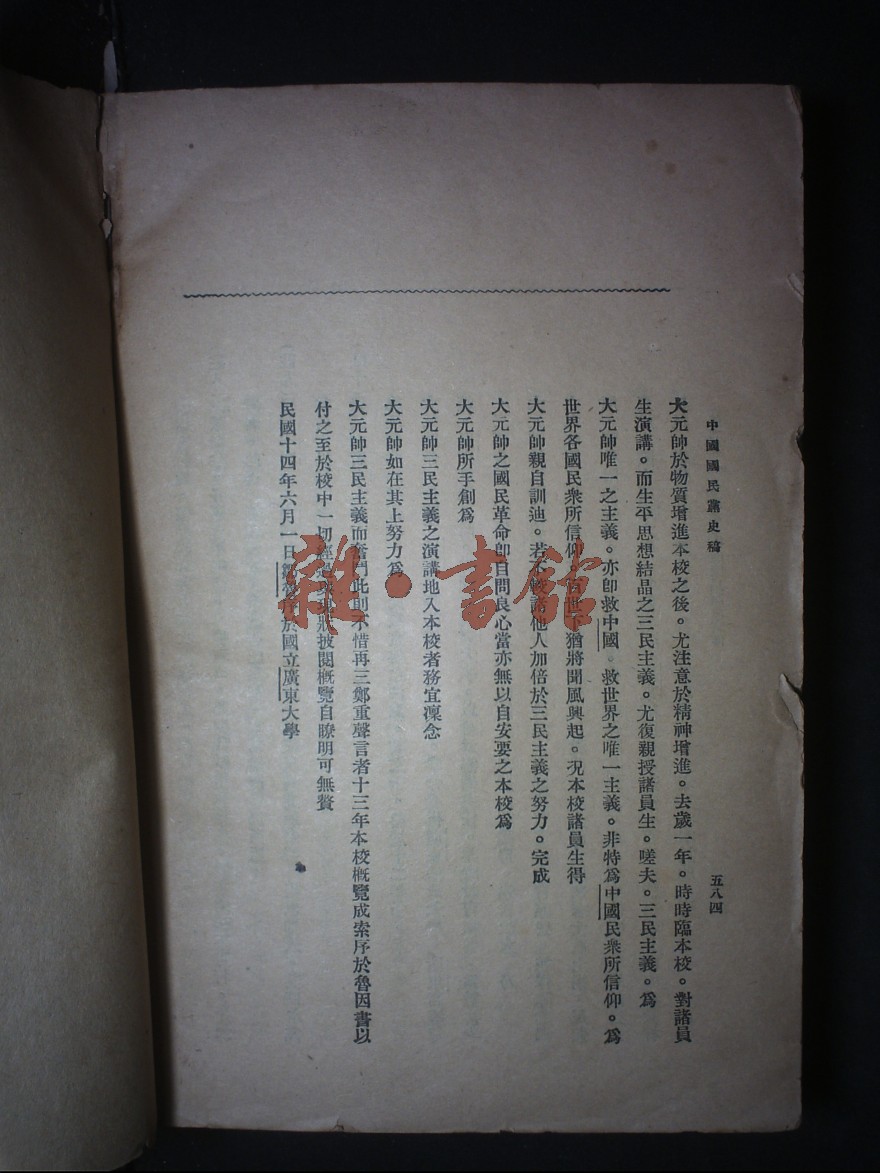 中國國民黨史稿
五八四
大元帥於物質增進本校之後。尤注意於精神增進。去歲一年。時時臨本校。對諸員
生演講。而生平思想結晶之三民主義。尤復親授諸員生。嗟夫。三民主義。爲
大元帥唯一之主義。亦卽救中國。救世界之唯一主義。非特爲中國民衆所信仰。爲
世界各國民衆所信仰。百世下猶將聞風興起。况本校諸員生得
大元帥親自訓迪。若不較諸他人加倍於三民主義之努力。完成
大元帥之國民革命卽自問良心當亦無以自安要之本校爲
大元帥所手創爲
大元帥三民主義之演講地入本校者務宜凜念
大元帥如在其上努力爲
大元帥三民主義而奮鬥此則不惜再三鄭重聲言者十三年本校概覽成索序於魯因書以
付之至於校中一切經過現狀披閱概覽自瞭明可無贅
民國十四年六月一日鄒魯序於國立廣東大學
雜·書館